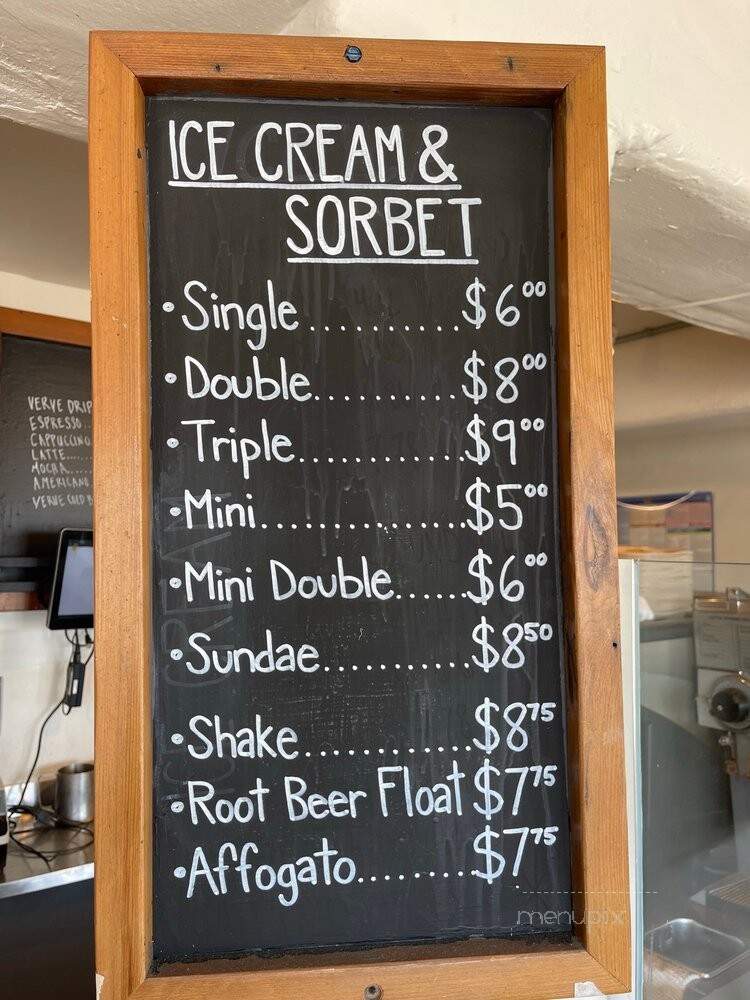 ICE CREAM &
SORBET
• Single .......... $6⁰⁰
• Double.......... $8⁰⁰
• Triple........... $9⁰⁰
• Mini.............. $5⁰⁰
• Mini Double...... $6⁰⁰
• Sundae........... $8⁵⁰
• Shake............ $8⁷⁵
• Root Beer Float $7⁷⁵
• Affogato........ $7⁷⁵
VERVE DRIP
ESPRESSO..
CAPPUCCINO
LATTE....
MOCHA....
AMERICANO
VERVE COLD B
menupix